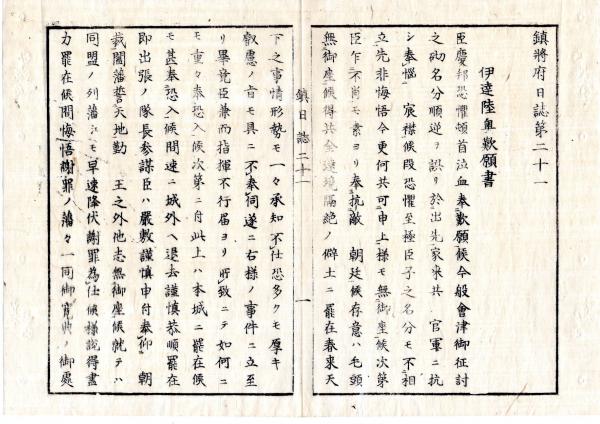 鎮将府日誌第二十一
伊達陸奥歎願書
臣慶邦恐懼頓首泣血奉歎願候今般會津御征討
之砌名分順逆ヲ誤リ於出先家来共 官軍ニ抗
シ奉惱 宸襟候段恐懼至極臣子之名分モ不相
立先非悔悟今更何共可申上様モ無御座候次第
臣乍不肖モ素ヨリ奉抗敵 朝廷候存意ハ毛頭
無御座候得共全遠境隔絶ノ僻土ニ罷在春来天
鎮日誌二十一
一
下之事情形勢モ一々承知不仕恐多クモ厚キ
叡慮ノ旨モ具ニ不奉伺遂ニ右様ノ事件ニ立至
リ畢竟臣兼而指揮不行届ヨリ所致ニテ如何ニ
モ重々奉恐入候次第ニ付此上ハ本城ニ罷在候
モ甚奉恐入候間速ニ城外ヘ退去謹慎恭順罷在
即出張ノ隊長参謀臣ハ嚴敷謹慎申付奉仰 朝
裁闔藩誓天地勤 王之外他志無御座候就テハ
同盟ノ列藩ニモ早速降伏謝罪為仕候様説得盡
力罷在候間悔悟謝罪ノ藩々一同御寛典ノ御處